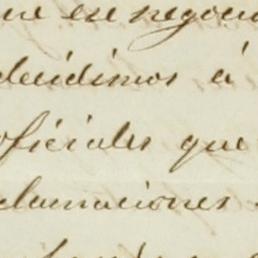 ese negocio
decidimos á
oficiales que
clamaciones